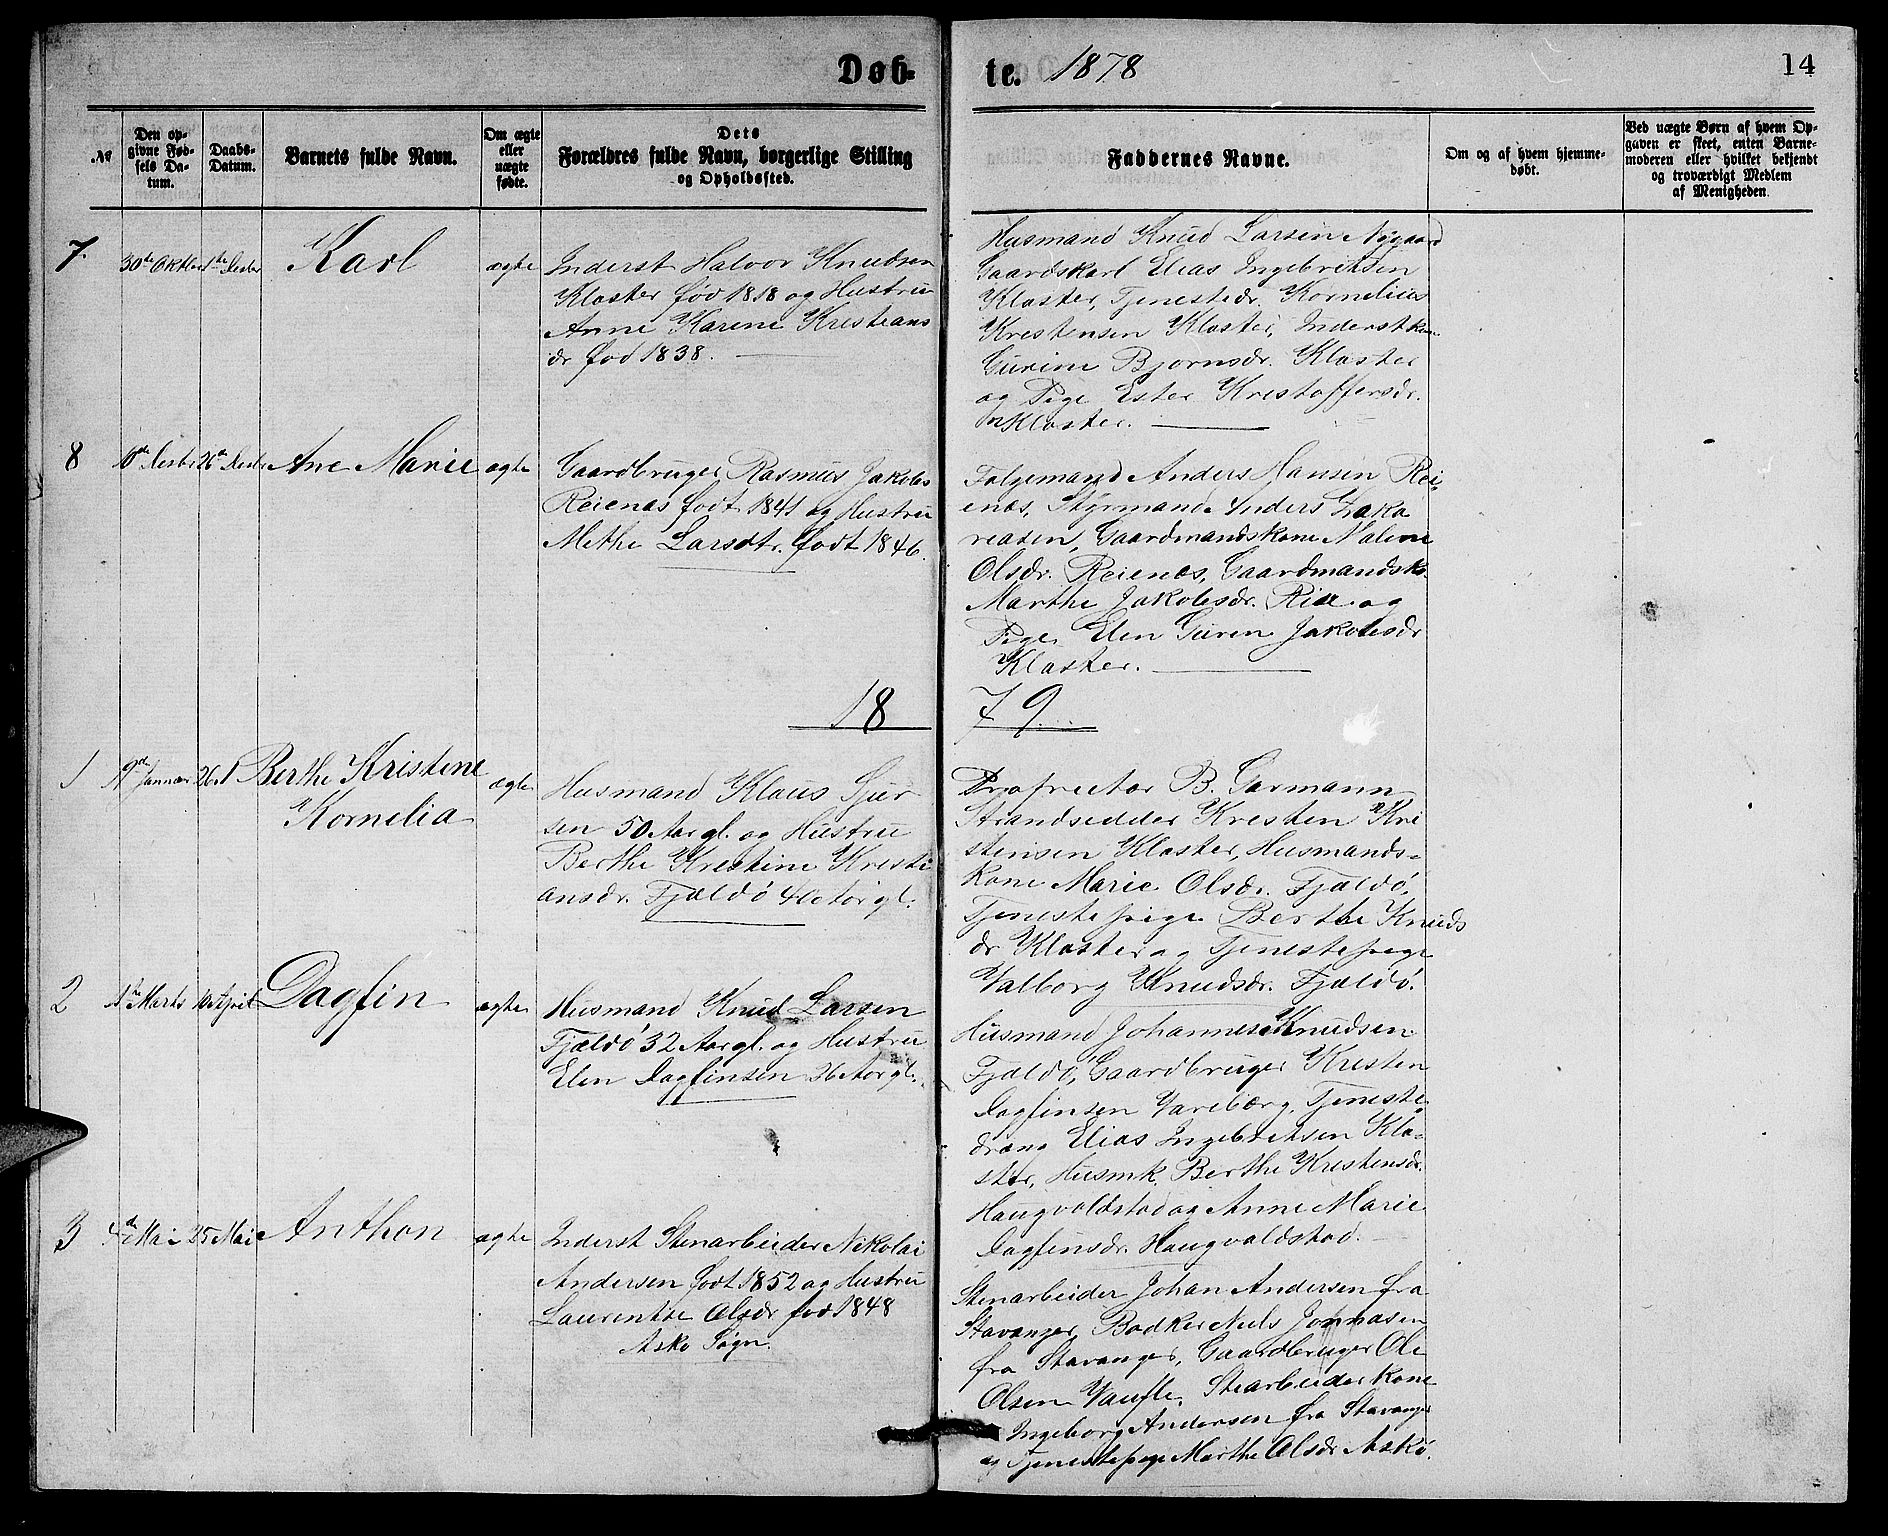 Døb-
te. 1878
14
№
Den op-
givne Fød-
sels Da-
tum.
Daabs-
Datum.
Barnets fulde Navn.
Om ægte
eller
uægte
fødte.
Dets
Forældres fulde Navn, borgerlige Stilling
og Opholdssted.
Faddernes Navne.
Om og af hvem hjemme-
døbt.
Ved uægte Børn af hvem Op-
gaven er skeet, enten Barne-
moderen eller hvilket bekjendt
og troværdigt Medlem
af Menigheden.
7. 30te Oktbr 1ste Decbr Karl ægte
Inderst Halvor Knudsen
Kloster fød 1818 og Hustru
Anne Karine Kristians
dr. fød 1838.
Husmand Knud Larsen Nygaard
Gaardskarl Elias Ingebritsen
Kloster, Tjenestedr. Kornelius
Kristensen Kloster, Inderstkone
Gurine Bjørnsdr. Kloster
og Pige Ester Kristoffersdr.
Kloster.
8 10de Decbr 26de Decbr Ane Marie ægte
Gaardbruger Rasmus Jakobs
Reienes født 1841 og Hustru
Methe Larsdtr. født 1846.
Følgemand Anders Hansen Rei-
enæs, Styrmand Anders Zaka
reasen, Gaardmandskone Malene
Olsdr. Reienæs, Gaardmandsk.
Marthe Jakobsdr. og
Pige Elen Guren Jakobsdr
Kloster.
18
79
1 Januar 26de Berthe Kristine
Kornelia
ægte
Husmand Klaus Sjur
sen 50 Aar gl. og Hustru
Berthe Kristine Kristi
ansdr. Fjældø 40 Aar gl.
Proprietær B. Garmann
Strandsidder Kristen Kri
stensen Kloster, Husmands-
kone Marie Olsdr. Fjældø,
Tjenestepige Berthe Knuds
dr Kloster og Tjenestepige
Valborg Knudsdr. Fjældø.
2 1ste Marts April Dagfin ægte
Husmand Knud Larsen
Fjældø 32 Aar gl. og Hustru
Elen Dagfinsen 26 Aar gl.
Husmand Johannes Knudsen
Fjældø, Gaardbruger Kristen
Dagfinsen Vareberg, Tjeneste
dreng Elias Ingebritsen Klo-
ster, Husmk. Berthe Kristensdr.
Haugvaldstad og Anne Marie
Dagfinsdr. Haugvaldstad.
3 4de Mai 25 Mai Anthon ægte
Inderst Stenarbeider Nikolai
Andersen født 1852 og Hustru
Laurentse Olsdr fød 1848
Askø Sogn.
Stenarbeider Johan Andersen fra
Stavanger, Bødker Niels Jonnasen
fra Stavanger, Gaardbruger Ole
Olsen, Stenarbeider kone
Ingeborg Andersen fra Stavanger
og Tjenestepige Marthe Olsdr Askø.